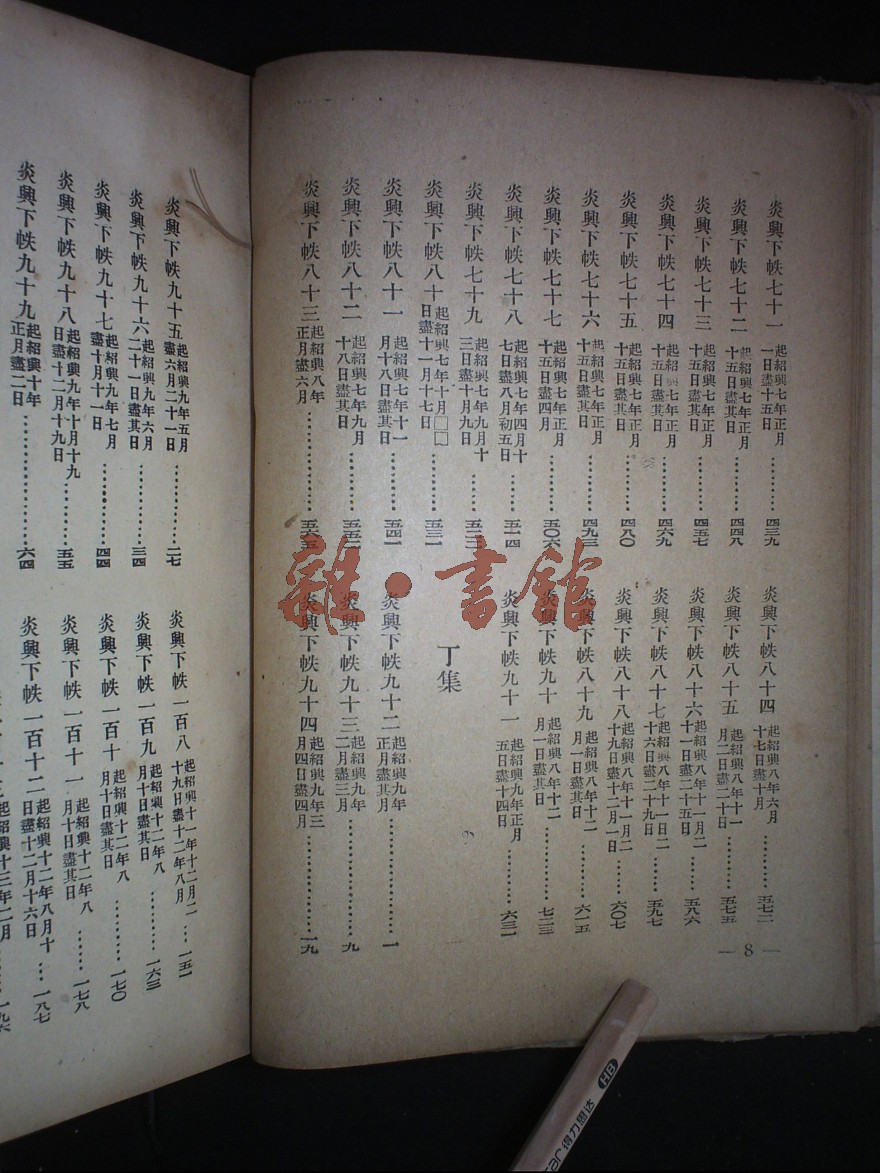 炎興下帙七十一 起紹興七年正月一日盡十五日…………四三九
炎興下帙七十二 起紹興七年正月十五日盡其日…………四四八
炎興下帙七十三 起紹興七年正月十五日盡其日…………四五七
炎興下帙七十四 起紹興七年正月十五日盡其日…………四六九
炎興下帙七十五 起紹興七年正月十五日盡其日…………四八〇
炎興下帙七十六 起紹興七年正月十五日盡其日…………四九三
炎興下帙七十七 起紹興七年正月十五日盡四月…………五〇六
炎興下帙七十八 起紹興七年四月十七日盡八月初五日……五一四
炎興下帙七十九 起紹興七年九月十三日盡十九日…………五二二
炎興下帙八十 起紹興七年十月□□日盡十一月十七日……五三一
炎興下帙八十一 起紹興七年十一月十八日盡其日…………五四一
炎興下帙八十二 起紹興七年九月十八日盡其日…………五五二
炎興下帙八十三 起紹興八年正月盡六月…………五六五
炎興下帙八十四 起紹興八年六月十七日盡十月…………五七二
炎興下帙八十五 起紹興八年十一月二日盡二十日…………五七五
炎興下帙八十六 起紹興八年十一月二十一日盡二十五日……五八六
炎興下帙八十七 起紹興八年十一日二十六日盡二十九日……五九七
炎興下帙八十八 起紹興八年十一月二十九日盡十二月一日……六〇七
炎興下帙八十九 起紹興八年十二月一日盡其日…………六一五
炎興下帙九十 起紹興八年十二月一日盡其日…………七二三
炎興下帙九十一 起紹興九年正月五日盡十四日…………六三一
丁集
炎興下帙九十二 起紹興九年正月盡其月…………一
炎興下帙九十三 起紹興九年二月盡三月…………九
炎興下帙九十四 起紹興九年三月四日盡四月…………一九
— 8 —
炎興下帙九十五 起紹興九年五月盡六月二十一日…………二七
炎興下帙九十六 起紹興九年六月二十一日盡其日…………三四
炎興下帙九十七 起紹興九年七月盡十月十一日…………四四
炎興下帙九十八 起紹興九年十月十九日盡十二月十九日……五五
炎興下帙九十九 起紹興十年正月盡二日…………六四
炎興下帙一百八 起紹興十一年十二月二十九日盡十二年八月…一五一
炎興下帙一百九 起紹興十二年八月十日盡其日……一六三
炎興下帙一百十 起紹興十二年八月十日盡其日……一七〇
炎興下帙一百十一 起紹興十二年八月十日盡其日……一七八
炎興下帙一百十二 起紹興十二年八月十日盡十二月十六日…一八七
起紹興十三年二月……一九六
雜·書館
得力思达
HB